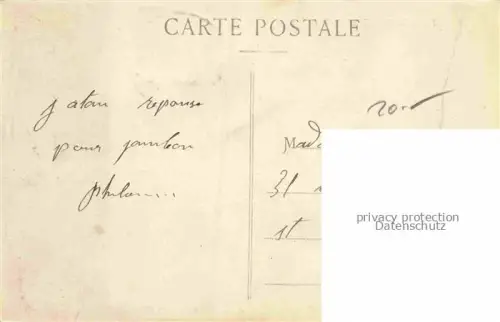 CARTE POSTALE
j atan reponse
pour jambon
20
Mad
31
st
privacy protection
Datenschutz